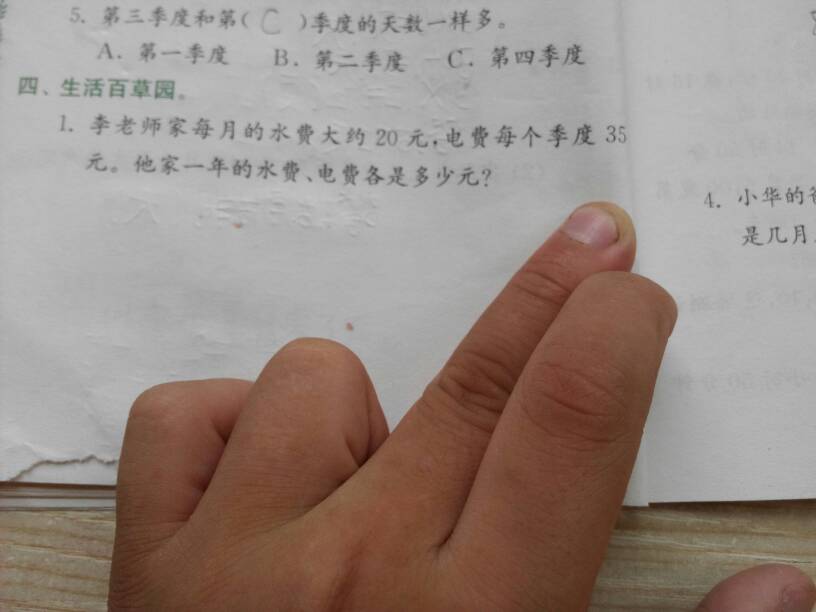 5. 第三季度和第( C )季度的天数一样多。
A. 第一季度 B. 第二季度 C. 第四季度
四、生活百草园。
1. 李老师家每月的水费大约 20 元,电费每个季度 35
元。他家一年的水费、电费各是多少元?
4. 小华的
是几月